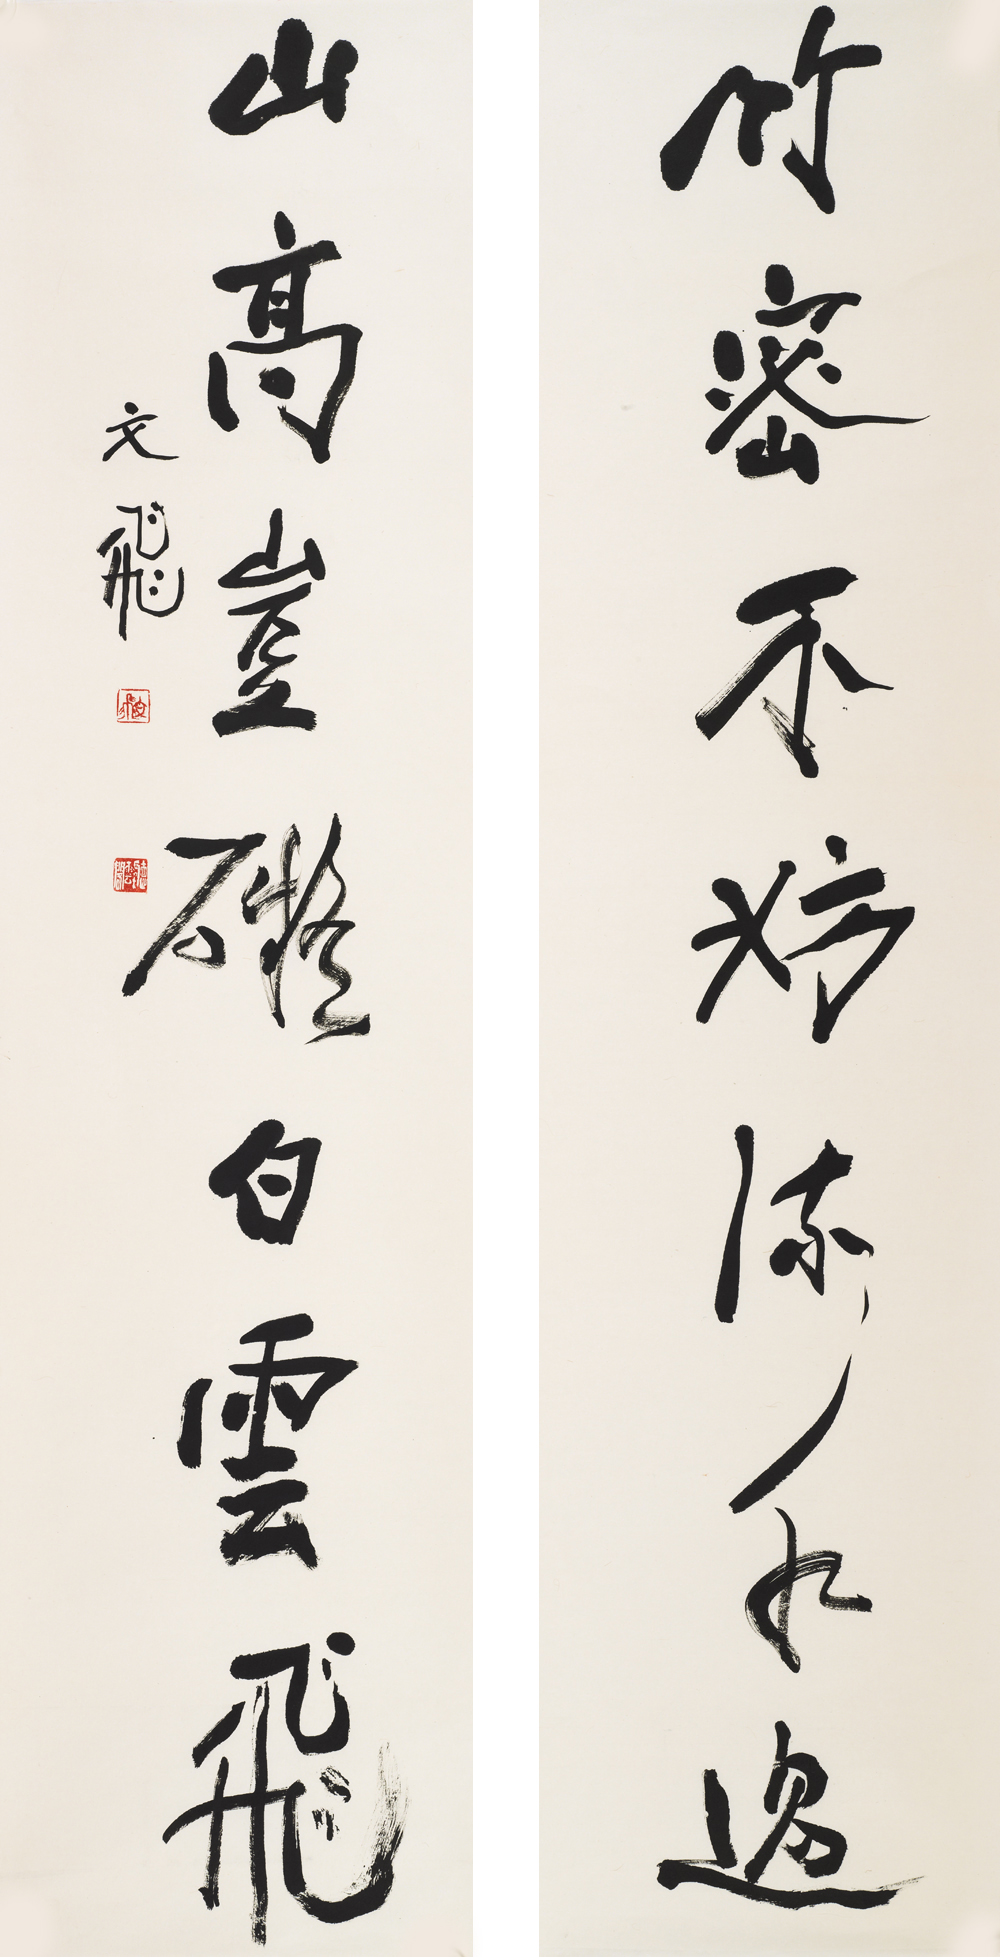 竹密不妨流水過
山高豈礙白雲飛
文飛